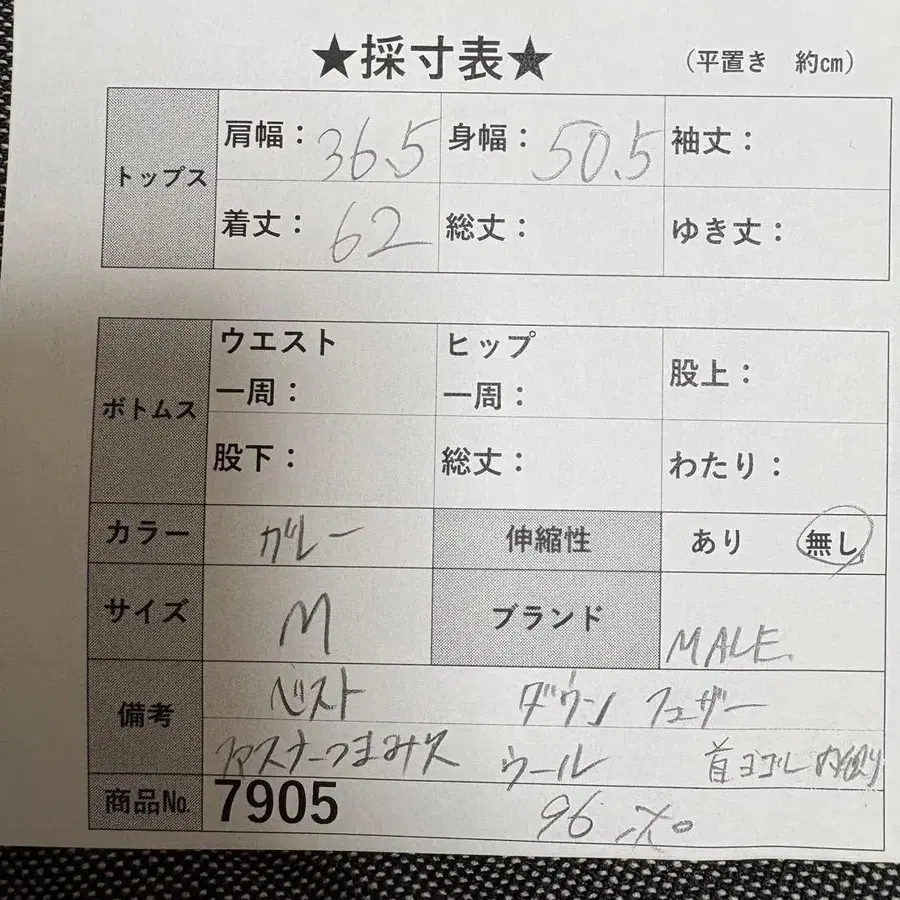 ★採寸表★ (平置き 約㎝)
トップス 肩幅： 36.5 身幅： 50.5 袖丈：
着丈： 62 総丈： ゆき丈：
ボトムス ウエスト一周： ヒップ一周： 股上：
股下： 総丈： わたり：
カラー グレー 伸縮性 あり 無し
サイズ M ブランド MALE.
備考 ベスト ダウン フェザー
ファスナーつまみ欠 ウール 首ヨゴレ 内側
商品No. 7905 96